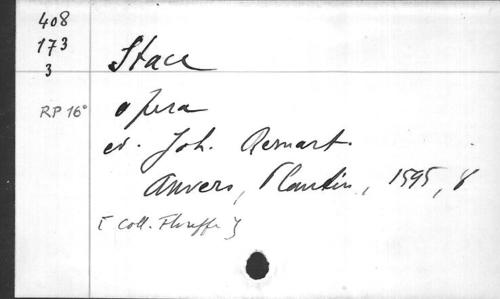 408
173
3
Stace
RP 16°
opera
ed. Joh. Bernart.
Anvers, Plantin, 1595, 8
[coll. Thruffe]